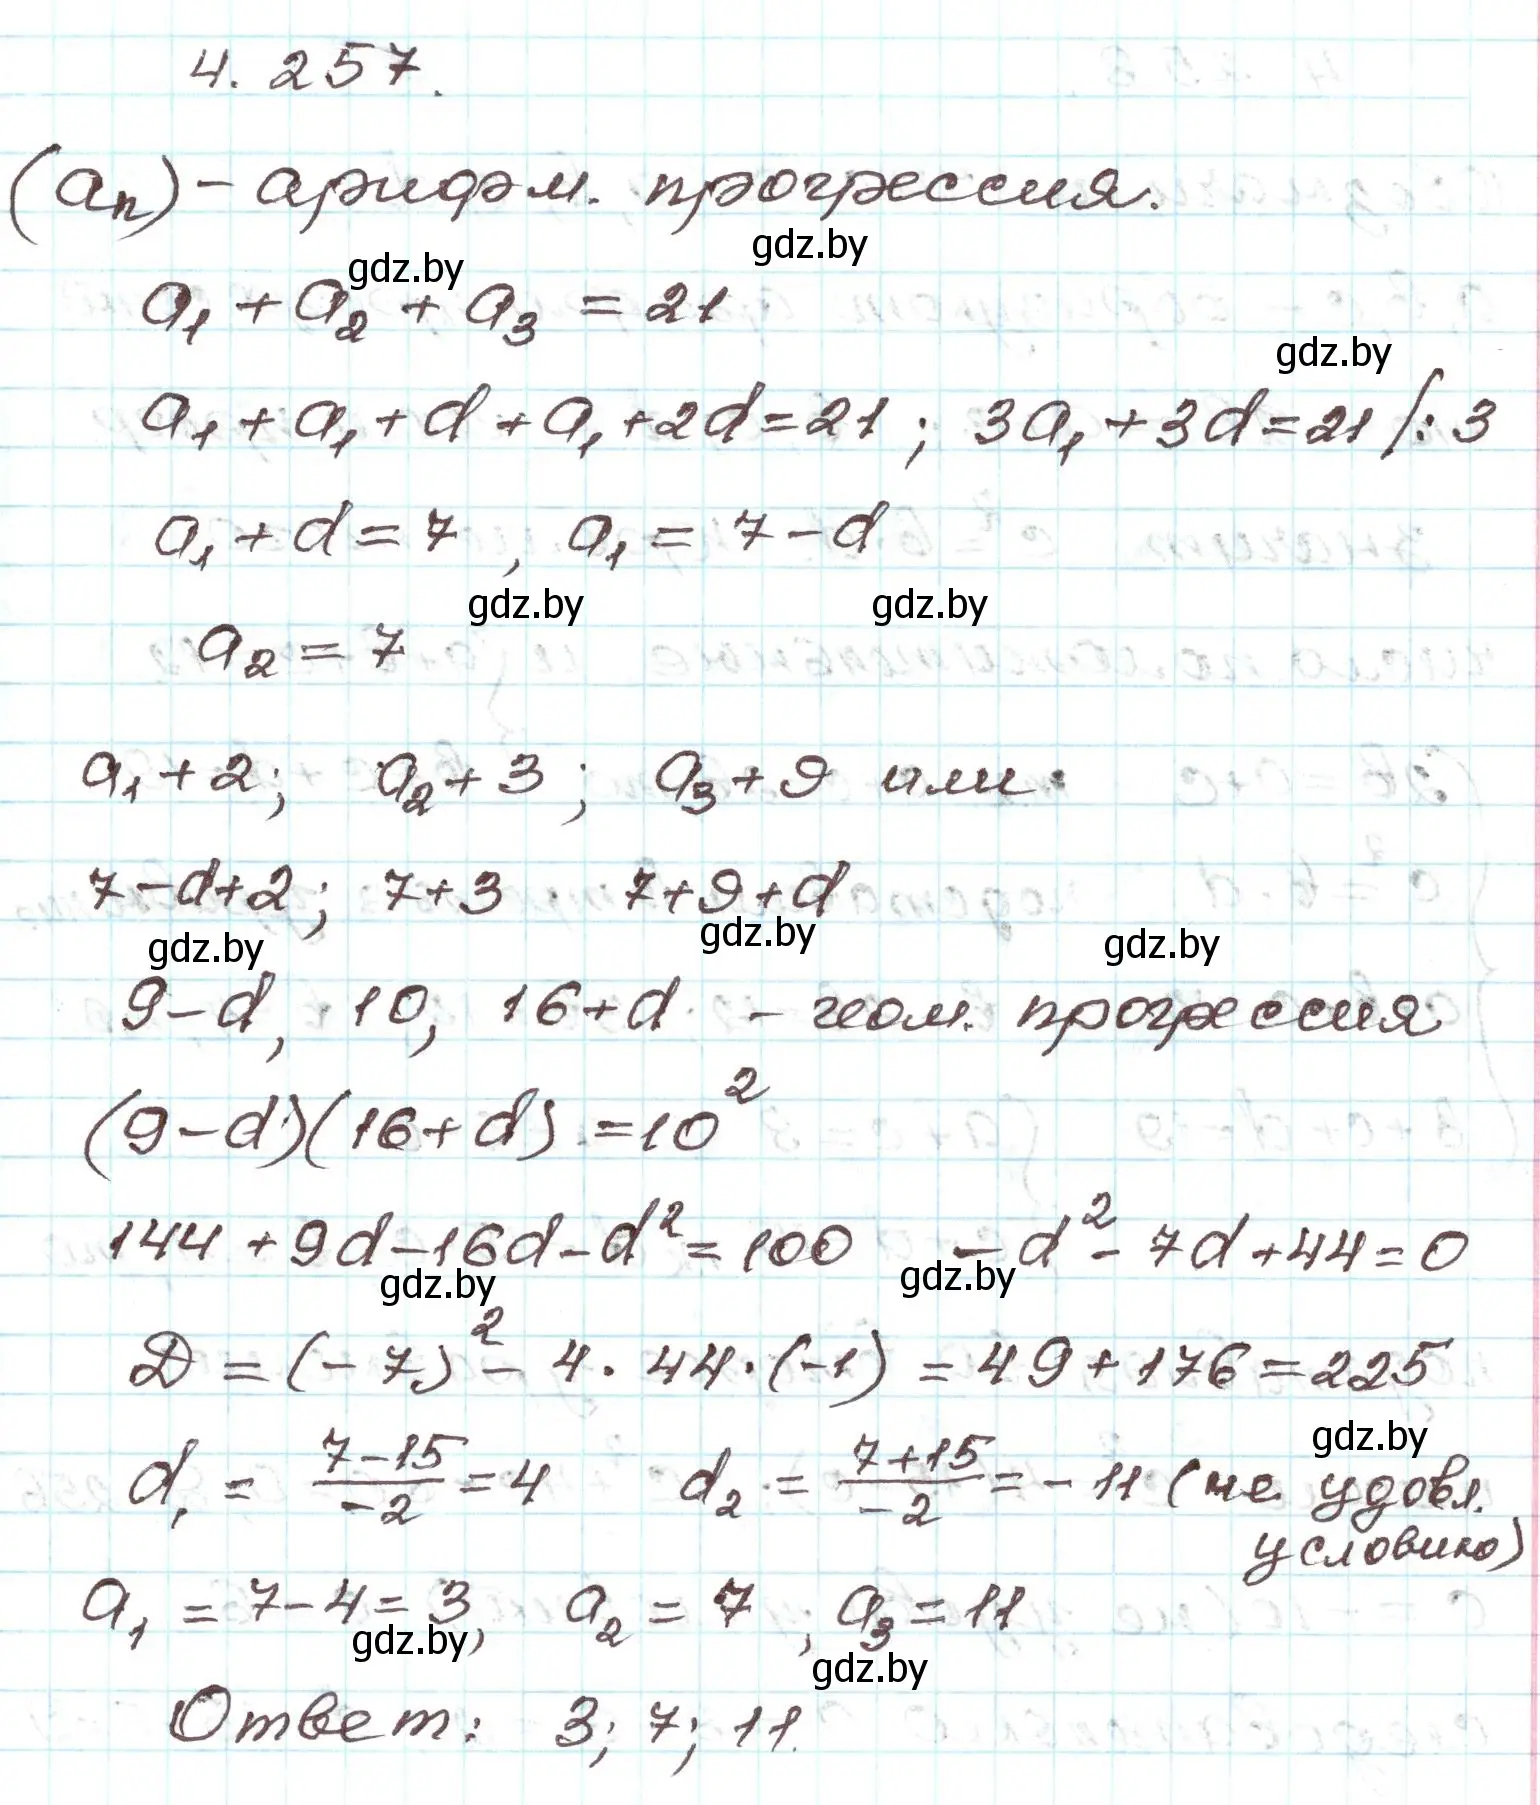 4.257.
(aₙ) – арифм. прогрессия.
gdz.by gdz.by
a₁ + a₂ + a₃ = 21
gdz.by
a₁ + a₁ + d + a₁ + 2d = 21 ; 3a₁ + 3d = 21 /: 3
a₁ + d = 7 , a₁ = 7 – d
gdz.by gdz.by
a₂ = 7
a₁ + 2; a₂ + 3 ; a₃ + 9 или:
7 – d + 2 ; 7 + 3 7 + 9 + d
gdz.by gdz.by gdz.by
9 – d, 10, 16 + d – геом. прогрессия
(9 – d)(16 + d) = 10²
144 + 9d – 16d – d² = 100 – d² – 7d + 44 = 0
gdz.by gdz.by
D = (–7)² – 4 · 44 · (–1) = 49 + 176 = 225
gdz.by
d₁ = (7 – 15)/(–2) = 4 d₂ = (7 + 15)/(–2) = –11 (не удовл.
условию)
a₁ = 7 – 4 = 3, a₂ = 7 ; a₃ = 11
gdz.by gdz.by
Ответ: 3; 7; 11.